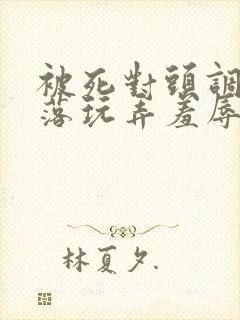 被死對頭調
落玩弄羞辱
林夏夕.